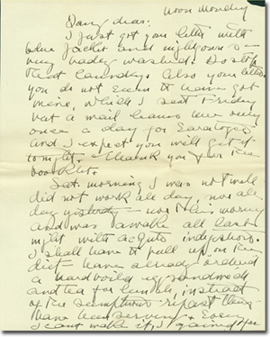 Noon Monday
Dear dear:
I just got your letter with
blue jacket and nightgown
very badly washed. Do stop
that laundry. Also your letter
you do not seem to have got
mine, which I sent Friday
but a mail leaves here only
once a day for Saratoga
and I expect you will get it
to-night. Thank you for the
booklet.
Sat. morning I was not well
did not work all day, nor all
day yesterday nor this morning
and was awake all last
night with acute indigestion
I shall have to pull up on the
diet have already ordered
a hard boiled egg sandwich
and tea for lunch, instead
of the sumptuous repast they
have been serving. Even
I can't make it, I gained